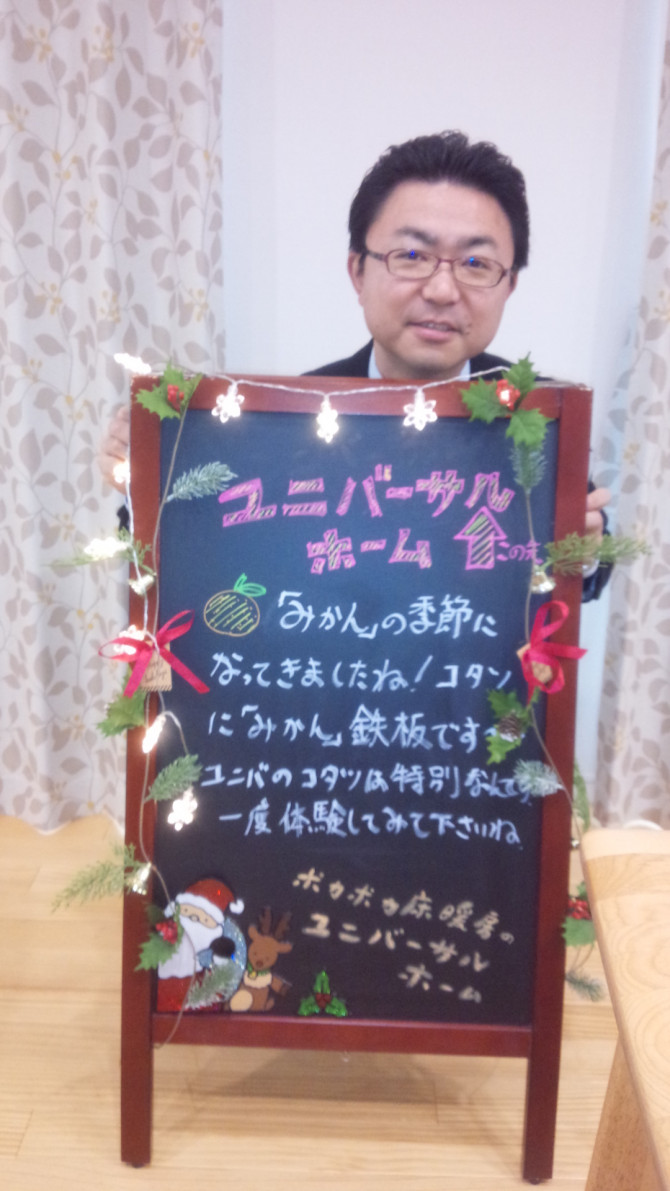 ユニバーサル
ホーム この上
「みかん」の季節に
なってきましたね！コタツ
に「みかん」鉄板です
ユニバのコタツは特別なんです
一度体験してみて下さいね
ポカポカ床暖房の
ユニバーサル
ホーム